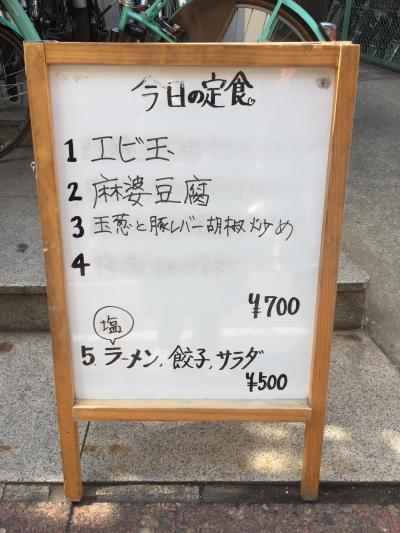 今日の定食
1 エビ玉
2 麻婆豆腐
3 玉葱と豚レバー胡椒炒め
4
¥700
塩
5. ラーメン, 餃子, サラダ
¥500